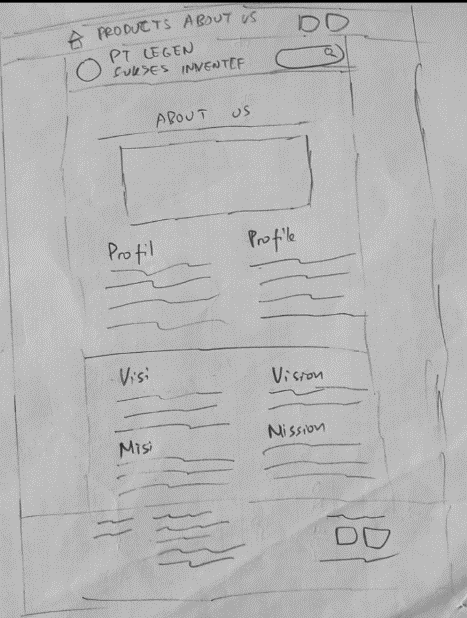 PRODUCTS ABOUT US
PT LEGEN
SUKSES INVENTEF
ABOUT US
Profil
Profile
Visi
Vision
Misi
Mission